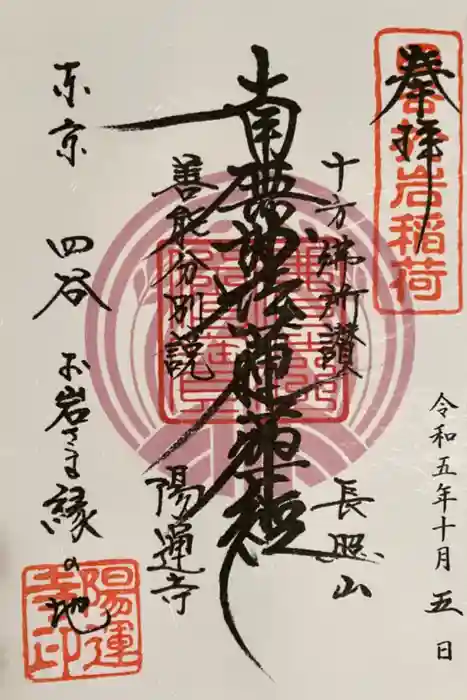 奉拝
於岩稲荷
令和五年十月五日
十方佛所讃
長照山
南無妙法蓮華経
善能分別説
陽運寺
東京 四谷 お岩さま縁の地
陽運寺印